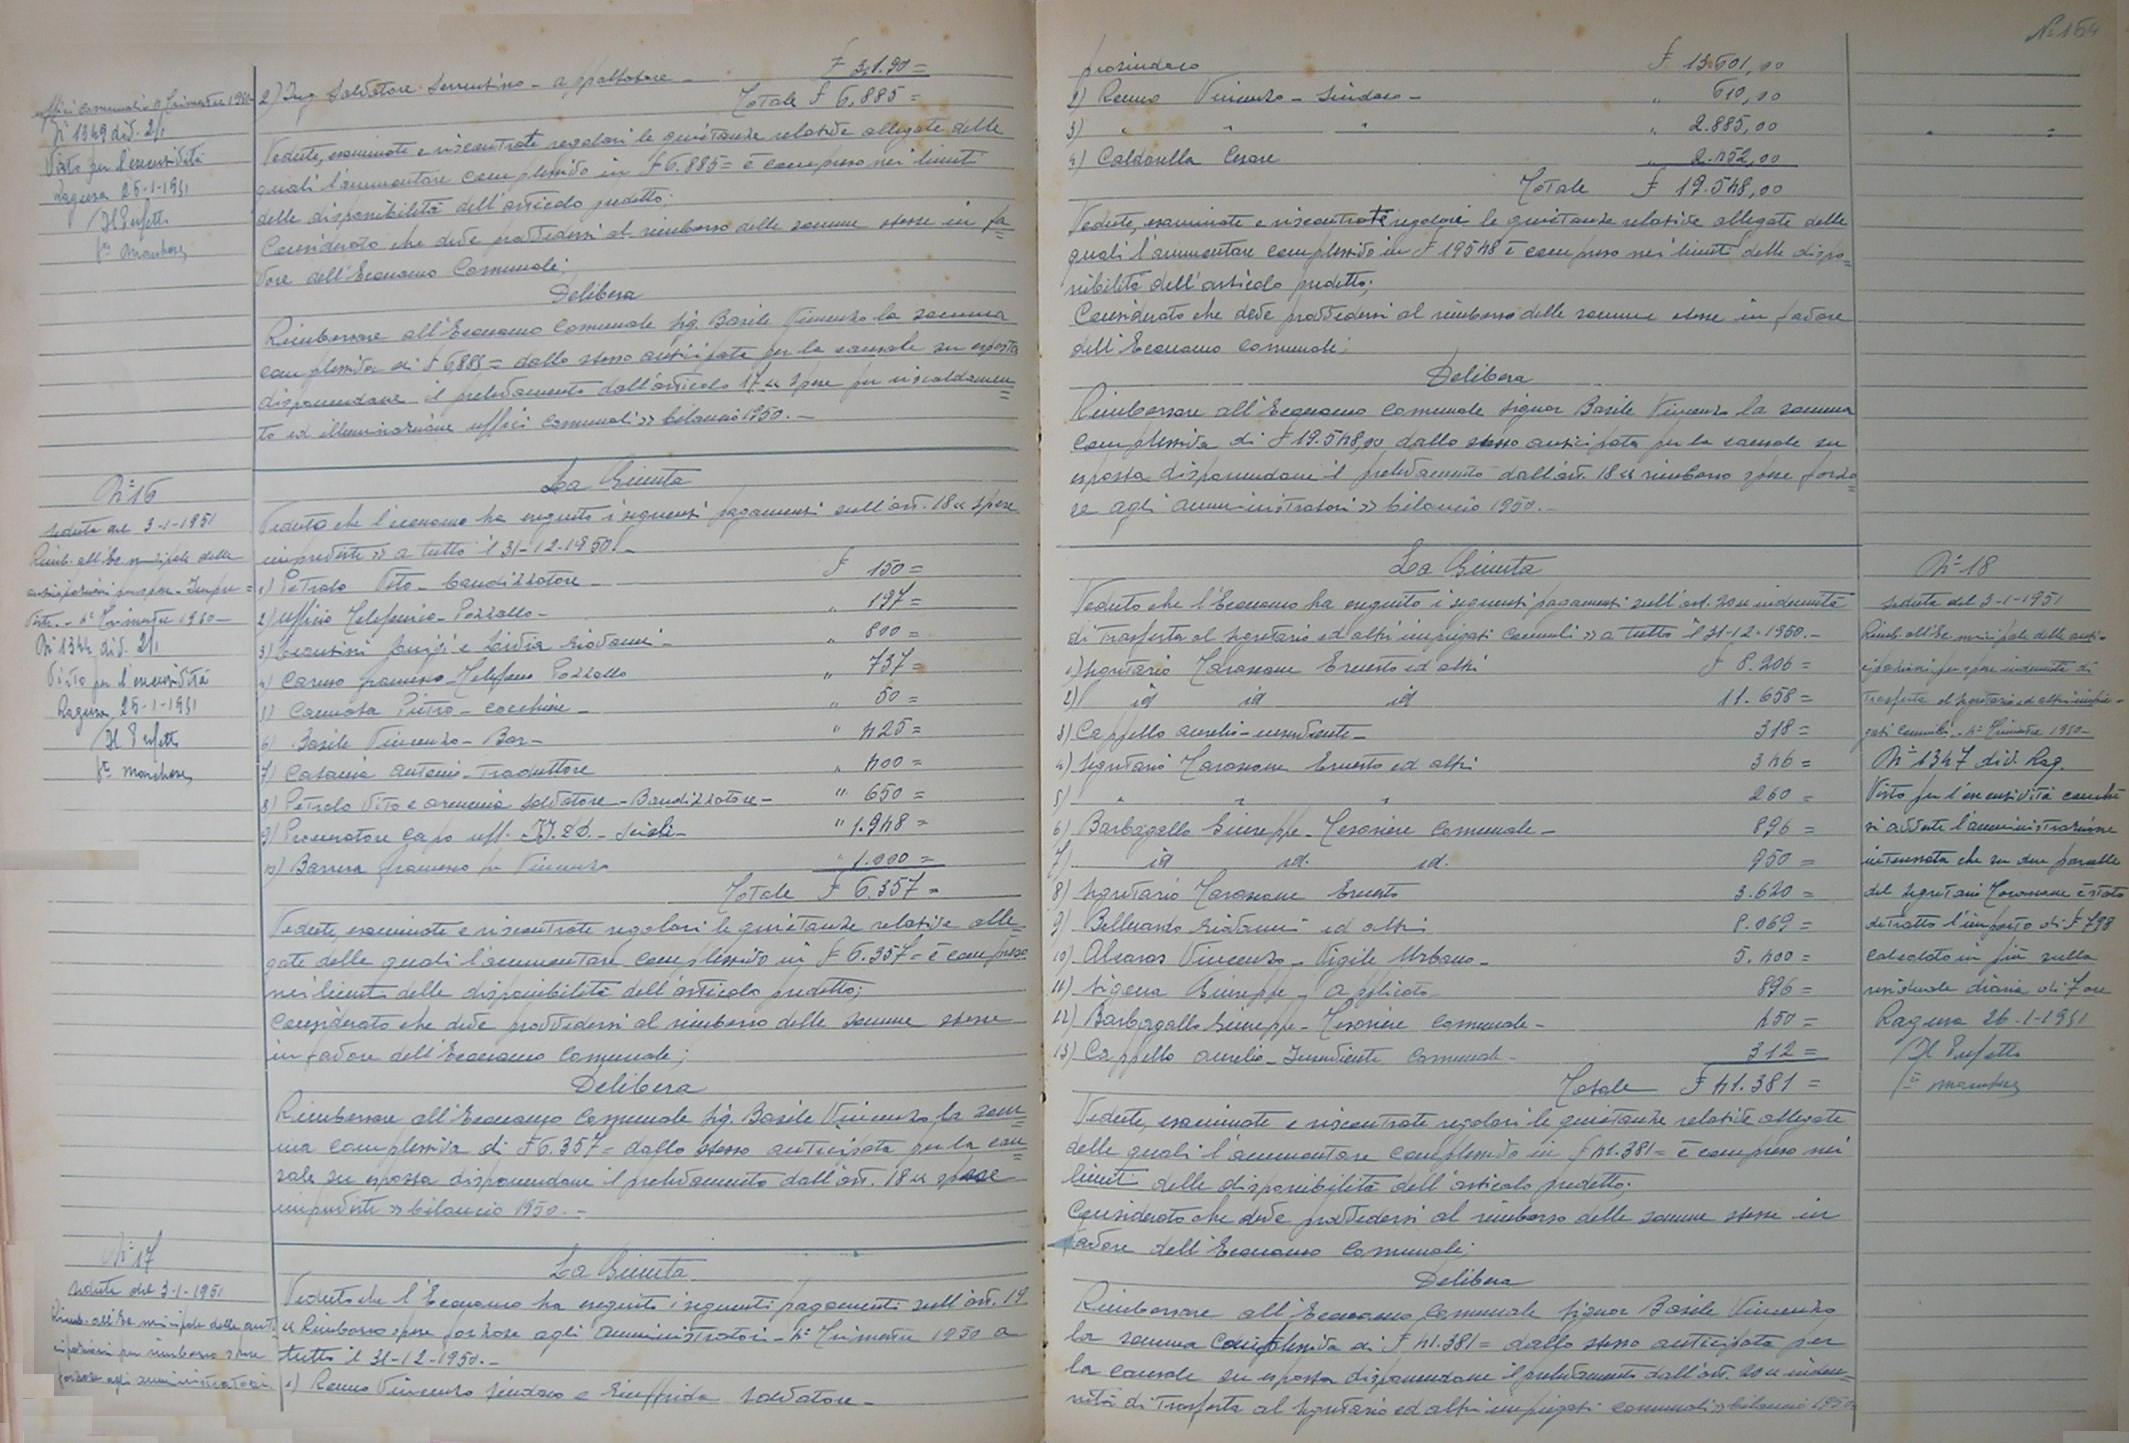 uffici comunali 4° Trimestre 1950
N° 1349 div. 2/1
Visto per l'esecutività
Ragusa 25-1-1951
Il Prefetto
2) Ing. Salvatore Sorrentino - appaltatore - £ 3.1.90=
Totale £ 6.885=
Vedute, esaminate e riscontrate regolari le quietanze relative allegate delle
quali l'ammontare complessivo in £ 6.885= è compreso nei limiti
delle disponibilità dell'articolo predetto;
Considerato che deve provvedersi al rimborso delle somme stesse in fa=
vore dell'Economo Comunale;
Delibera
Rimborsare all'Economo Comunale Sig. Basile Vincenzo la somma
complessiva di £ 6885= dallo stesso anticipata per la causale su esposta
disponendone il prelevamento dall'articolo 17 « spese per riscaldamen=
to ed illuminazione uffici comunali » bilancio 1950.-
N° 16
seduta del 3-1-1951
Rimb. all'Ec. municipale delle
anticipazioni per spese Impre=
viste - 4° Trimestre 1950-
N° 1344 div. 2/1
Visto per l'esecutività
Ragusa 25-1-1951
Il Prefetto
La Giunta
Veduto che l'economo ha eseguito i seguenti pagamenti sull'art. 18 « spese
impreviste » a tutto il 31-12-1950.-
1) Petralo Vito - banditore - £ 150=
2) Ufficio Telefonico - Pozzallo - " 197=
3) Luigi e Giovanni - " 800=
4) Caruso Telefono Pozzallo " 737=
5) Pietro - cocchiere - " 50=
6) Basile Vincenzo - Bar - " 425=
7) Catania Antonio - Traduttore " 400=
8) Petralo Vito e Salvatore - Banditore - " 650=
9) Procuratore capo uff. II. DD. - Scicli - " 1.948=
10) Barrera Francesco fu Vincenzo " 1.000=
Totale £ 6.357=
Vedute, esaminate e riscontrate regolari le quietanze relative alle=
gate delle quali l'ammontare complessivo in £ 6.357= è compreso
nei limiti delle disponibilità dell'articolo predetto;
Considerato che deve provvedersi al rimborso delle somme stesse
in favore dell'Economo Comunale;
Delibera
Rimborsare all'Economo Comunale Sig. Basile Vincenzo la som=
ma complessiva di £ 6.357= dallo stesso anticipata per la cau=
sale su esposta disponendone il prelevamento dall'art. 18 « spese
impreviste » bilancio 1950.-
N° 17
seduta del 3-1-1951
Rimb. all'Ec. municipale delle ant.
icipazioni per rimborso spese
forzose agli amministratori.
La Giunta
Veduto che l'Economo ha eseguito i seguenti pagamenti sull'art. 19
« Rimborso spese forzose agli Amministratori - 4° Trimestre 1950 a
tutto il 31-12-1950.-
1) Vincenzo Sindaco e Giuffrida Salvatore -
N° 154
prosindaco £ 13.601,00
2) Vincenzo - Sindaco - " 610,00
3) " " " " 2.885,00
4) Caldarella Cesare " 2.452,00
Totale £ 19.548,00
Vedute, esaminate e riscontrate regolari le quietanze relative allegate delle
quali l'ammontare complessivo in £ 19548 è compreso nei limiti delle dispo=
nibilità dell'articolo predetto;
Considerato che deve provvedersi al rimborso delle somme stesse in favore
dell'Economo Comunale;
Delibera
Rimborsare all'Economo Comunale Signor Basile Vincenzo la somma
complessiva di £ 19.548,00 dallo stesso anticipata per la causale su
esposta disponendone il prelevamento dall'art. 18 « rimborso spese forzo=
se agli Amministratori » bilancio 1950.-
La Giunta
Veduto che l'Economo ha eseguito i seguenti pagamenti sull'art. 20 « indennità
di trasferta al Segretario ed altri impiegati comunali » a tutto il 31-12-1950.-
1) Segretario Tarascone Ernesto ed altri £ 8.206=
2) id id id 11.658=
3) Cappello Aurelio - inserviente - 318=
4) Segretario Tarascone Ernesto ed altri 346=
5) " " " 260=
6) Barbagallo Giuseppe - Tesoriere Comunale - 896=
7) id id. id. 950=
8) Segretario Tarascone Ernesto 3.620=
9) Belluardo Giovanni ed altri 8.069=
10) Vincenzo - Vigile Urbano - 5.400=
11) Sigona Giuseppe - Applicato 896=
12) Barbagallo Giuseppe - Tesoriere Comunale - 450=
13) Cappello Aurelio - Inserviente Comunale - 312=
Totale £ 41.381=
Vedute, esaminate e riscontrate regolari le quietanze relative allegate
delle quali l'ammontare complessivo in £ 41.381= è compreso nei
limiti delle disponibilità dell'articolo predetto;
Considerato che deve provvedersi al rimborso delle somme stesse in
favore dell'Economo Comunale;
Delibera
Rimborsare all'Economo Comunale Signor Basile Vincenzo
la somma complessiva di £ 41.381= dallo stesso anticipata per
la causale su esposta disponendone il prelevamento dall'art. 20 « inden=
nità di trasferta al Segretario ed altri impiegati comunali » bilancio 1950.
N° 18
seduta del 3-1-1951
Rimb. all'Ec. municipale delle anti=
cipazioni per spese indennità di
trasferta al Segretario ed altri impie=
gati comunali - 4° Trimestre 1950-
N° 1347 div. Rag.
Visto per l'esecutività
si avverte l'amministrazione
interessata che su due parcelle
del Segretario Tarascone è stato
detratto l'importo di £ 798
calcolato in più sulla
diaria di 7 ore
Ragusa 26-1-1951
Il Prefetto